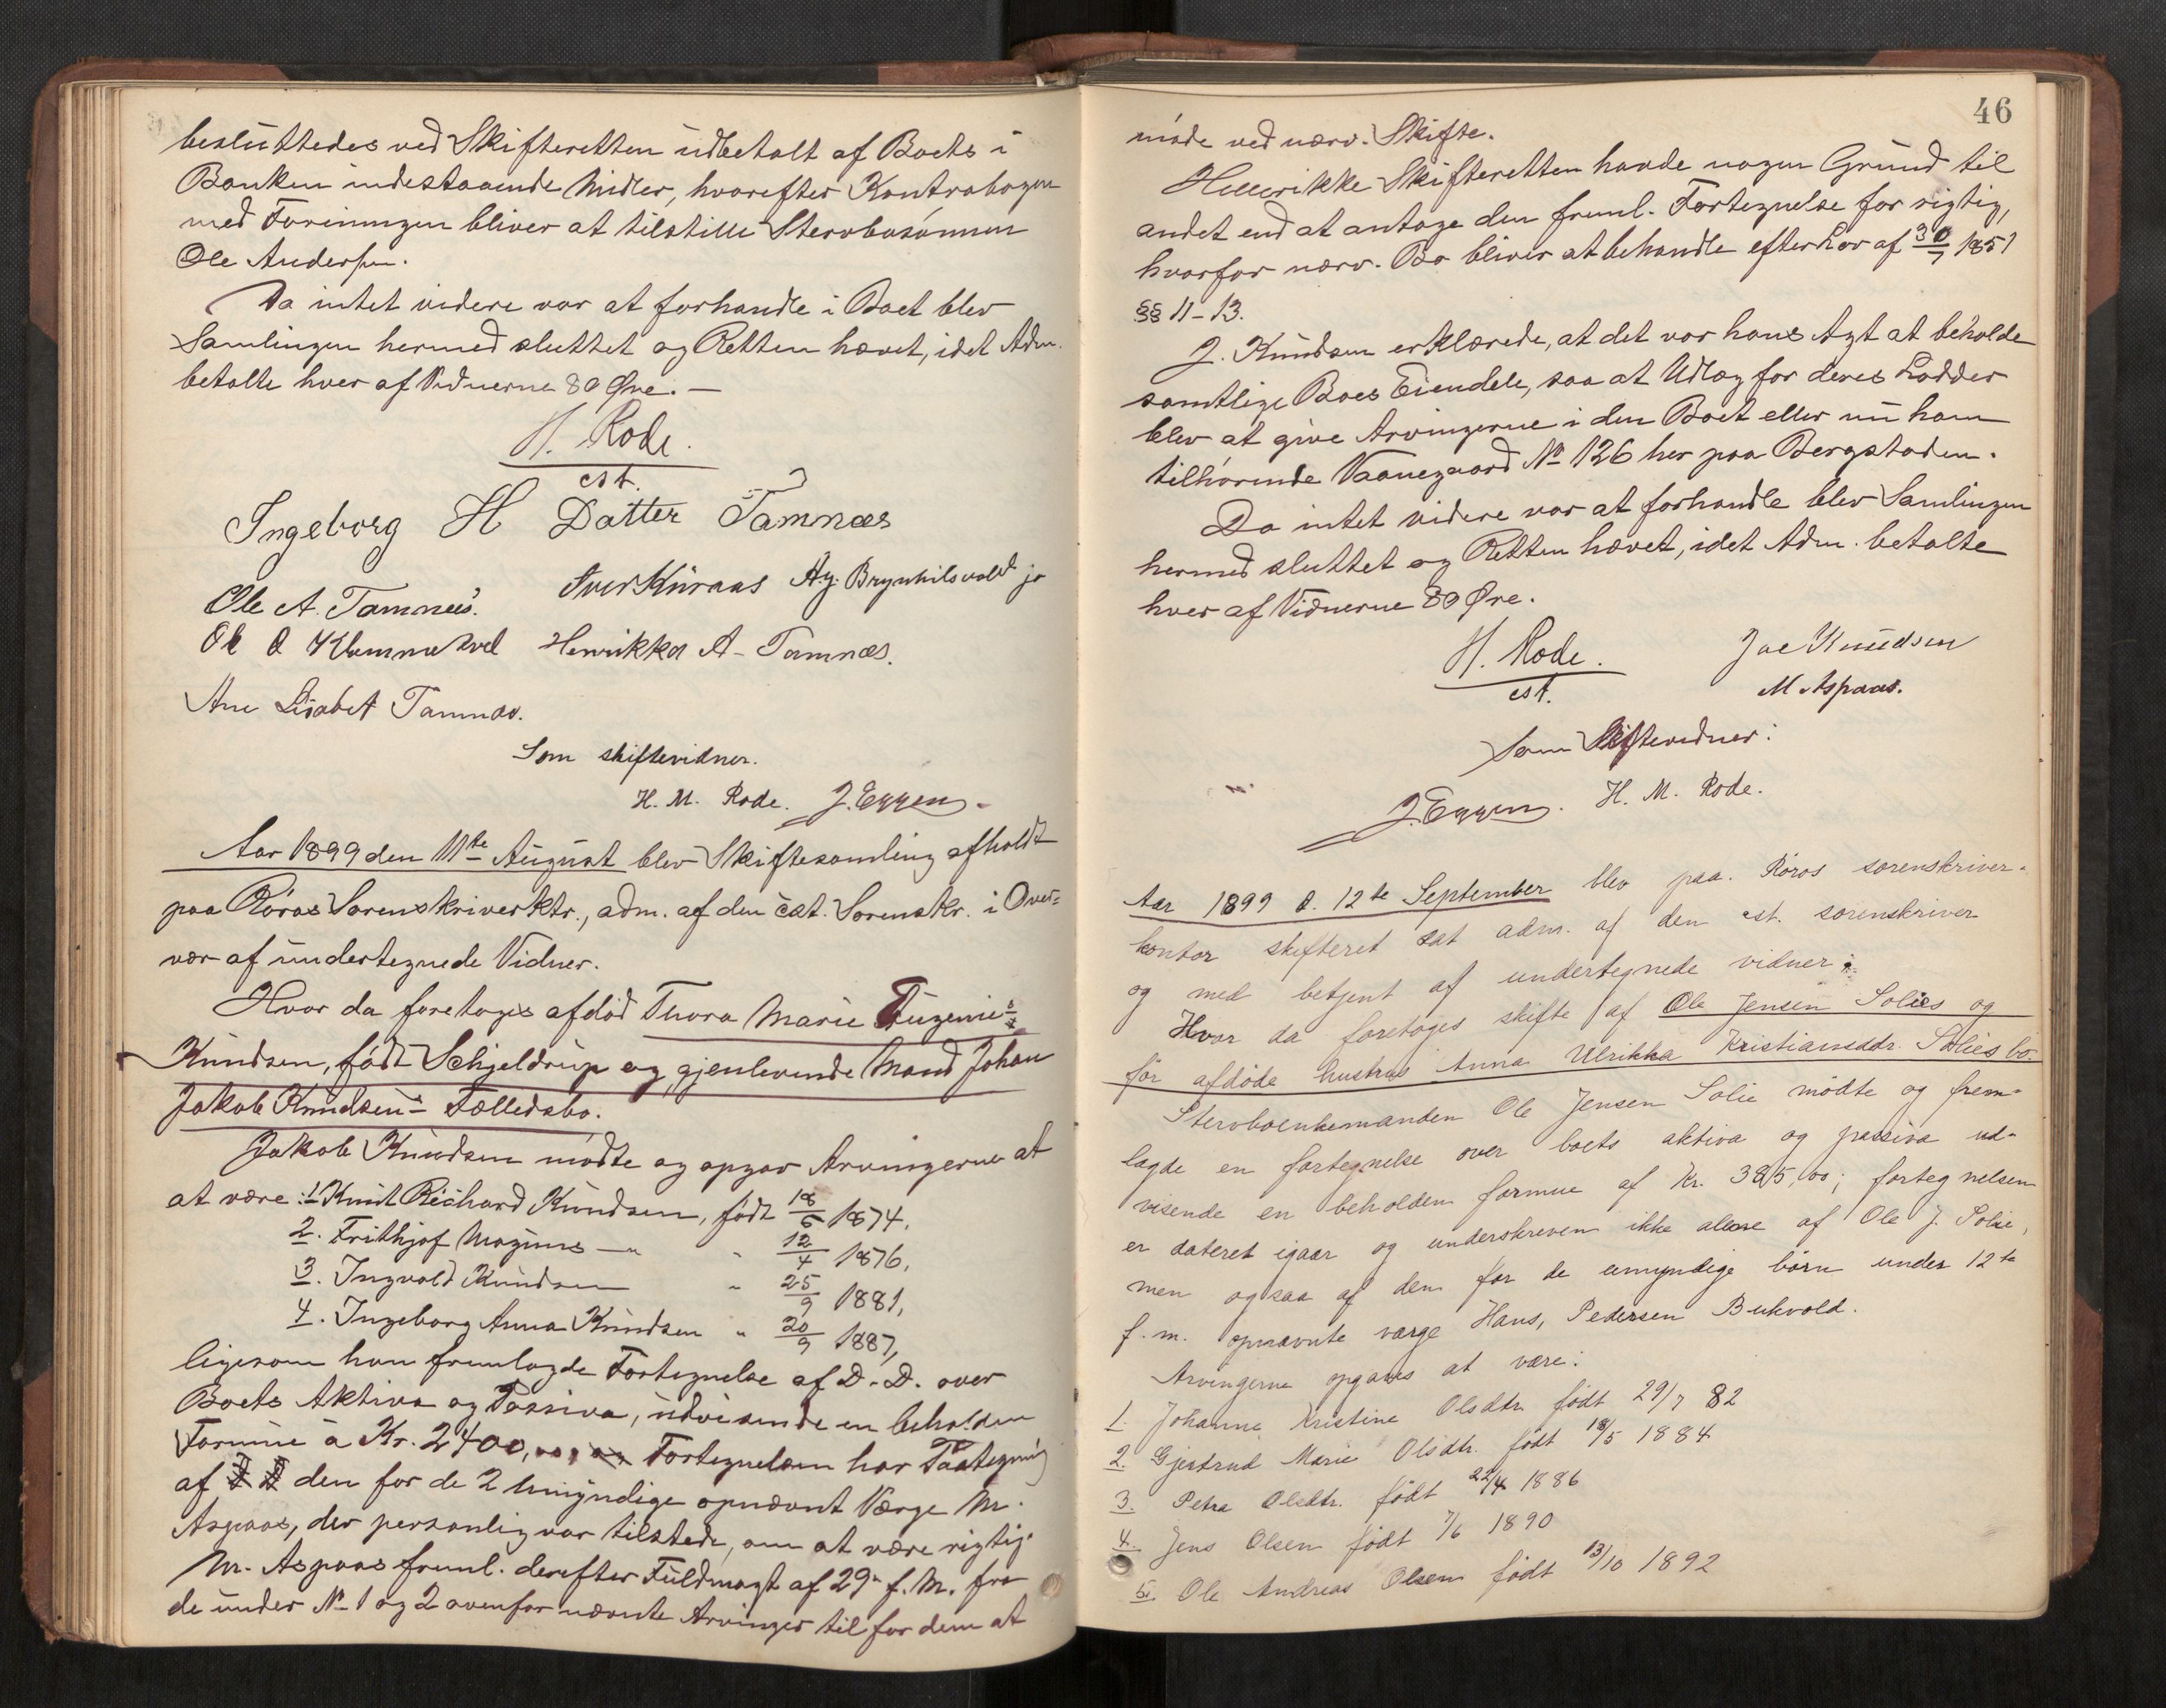 besluttedes ved Skifteretten udbetalt af Boets i
Banken indestaaende Midler, hvorefter Kontrabogen
med Foreningen bliver at tilstille Stervbosønnen
Ole Andersen.
Da intet videre var at forhandle i Boet blev
Samlingen hermed sluttet og Retten hævet, idet Adm.
betalte hver af Vidnerne 80 Øre. —
H. Rode.
cst.
Ingeborg H Datter Tamnæs
Ole A. Tamnes. Iver Kuraas Ag. Brynhilsvold jr
Ole O Henrikka A- Tamnæs.
Ane Lisabet Tamnæs.
Som skiftevidner.
H. M. Rode. J. Eggen.
Aar 1899 den 11te August blev Skiftesamling afholdt
paa Røros Sorenskriverktr., adm. af den cst. Sorenskr. i Over-
vær af undertegnede Vidner.
Hvor da foretoges afdød Thora Marie Eugenie
Knudsen, født Schjeldrup og gjenlevende Mand Johan
Jakob Knudsens Fællesbo.
Jakob Knudsen mødte og opgav Arvingerne at
at være: 1. Knut Richard Knudsen, født 18/6 1874,
2. Frithjof Magnus —"— " 12/4 1876,
3. Ingvald Knudsen " 25/9 1881,
4. Ingeborg Anna Knudsen " 20/9 1887,
ligesom han fremlagde Fortegnelse af D. D. over
Boets Aktiva og Passiva, udvisende en beholden
Formue à Kr. 2400,00, Fortegnelsen har Paategning
af den for de 2 Umyndige opnævnt Værge M.
Aspaas, der personlig var tilstede, om at være rigtig.
M. Aspaas freml. derefter Fuldmagt af 29. f. M. fra
de under No 1 og 2 ovenfor nævnte Arvinger til for dem at
46
møde ved nærv. Skifte.
Hellerikke Skifteretten havde nogen Grund til
andet end at antage den freml. Fortegnelse for rigtig,
hvorfor nærv. Bo bliver at behandle efter Lov af 30/7 1851
§§ 11-13.
J. Knudsen erklærede, at det var hans Agt at beholde
samtlige Boes Eiendele, saa at Udlæg for deres Lodder
blev at give Arvingerne i den Boet eller nu ham
tilhørende Vaanegaard No 126 her paa Bergstaden.
Da intet videre var at forhandle blev Samlingen
hermed sluttet og Retten hævet, idet Adm. betalte
hver af Vidnerne 80 Øre.
H. Rode. Jac Knudsen
cst. M Aspaas.
Som Skiftevidner:
J. Eggen. H. M. Rode.
Aar 1899 d. 12te September blev paa Røros sorenskriver-
kontor skifteret sat adm. af den cst. sorenskriver
og med betjent af undertegnede vidner:
Hvor da foretoges skifte af Ole Jensen Solies og
før afdøde hustrus Anna Ulrikka Kristiansddr. Solies bo.
Stervboenkemanden Ole Jensen Solie mødte og frem-
lagde en fortegnelse over boets aktiva og passiva ud-
visende en beholden formue af Kr. 385,00; fortegnelsen
er dateret igaar og underskreven ikke alene af Ole J. Solie,
men ogsaa af den for de umyndige børn under 12te
f. m. opnævnte værge Hans, Pedersen Bukvold.
Arvingerne opgaves at være:
1. Johanna Kristine Olsdtr. født 29/7 82
2. Gjertrud Marie Olsdtr. født 18/5 1884
3. Petra Olsdtr. født 22/4 1886
4. Jens Olsen født 7/6 1890
5. Ole Andreas Olsen født 13/10 1892